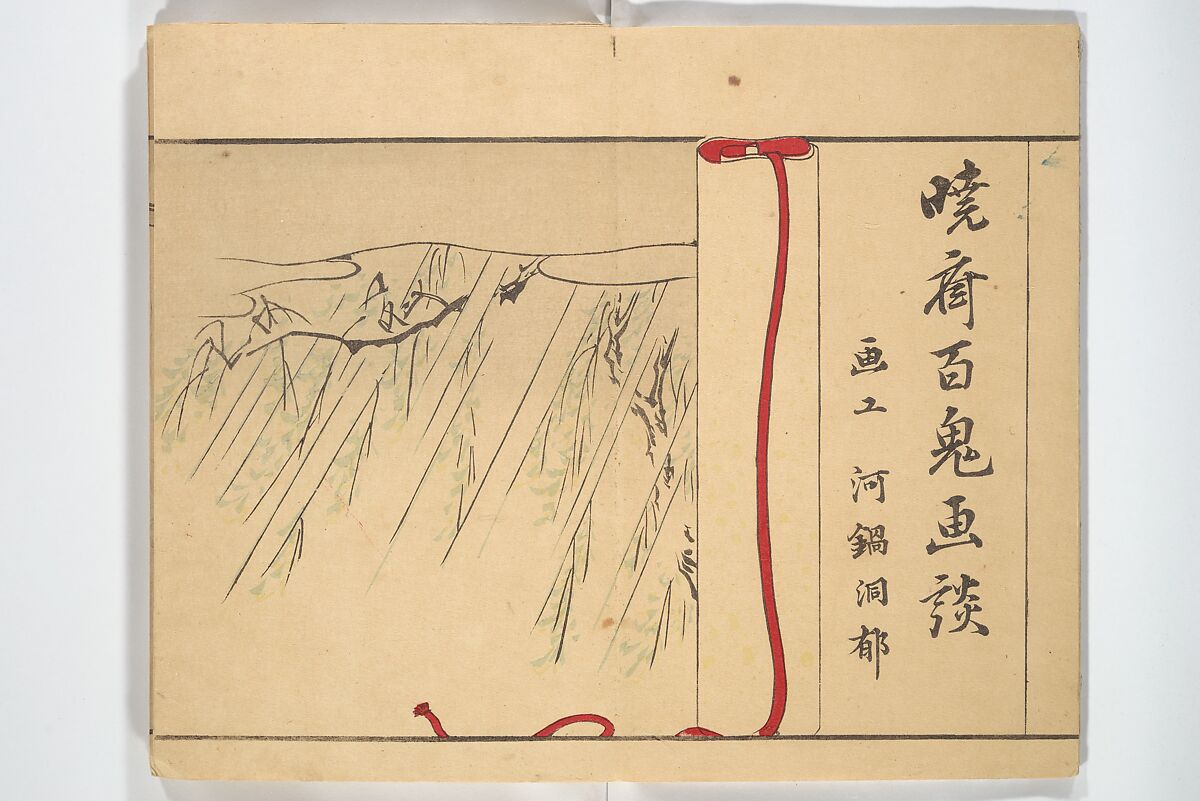 暁斎百鬼画談
画工 河鍋洞郁